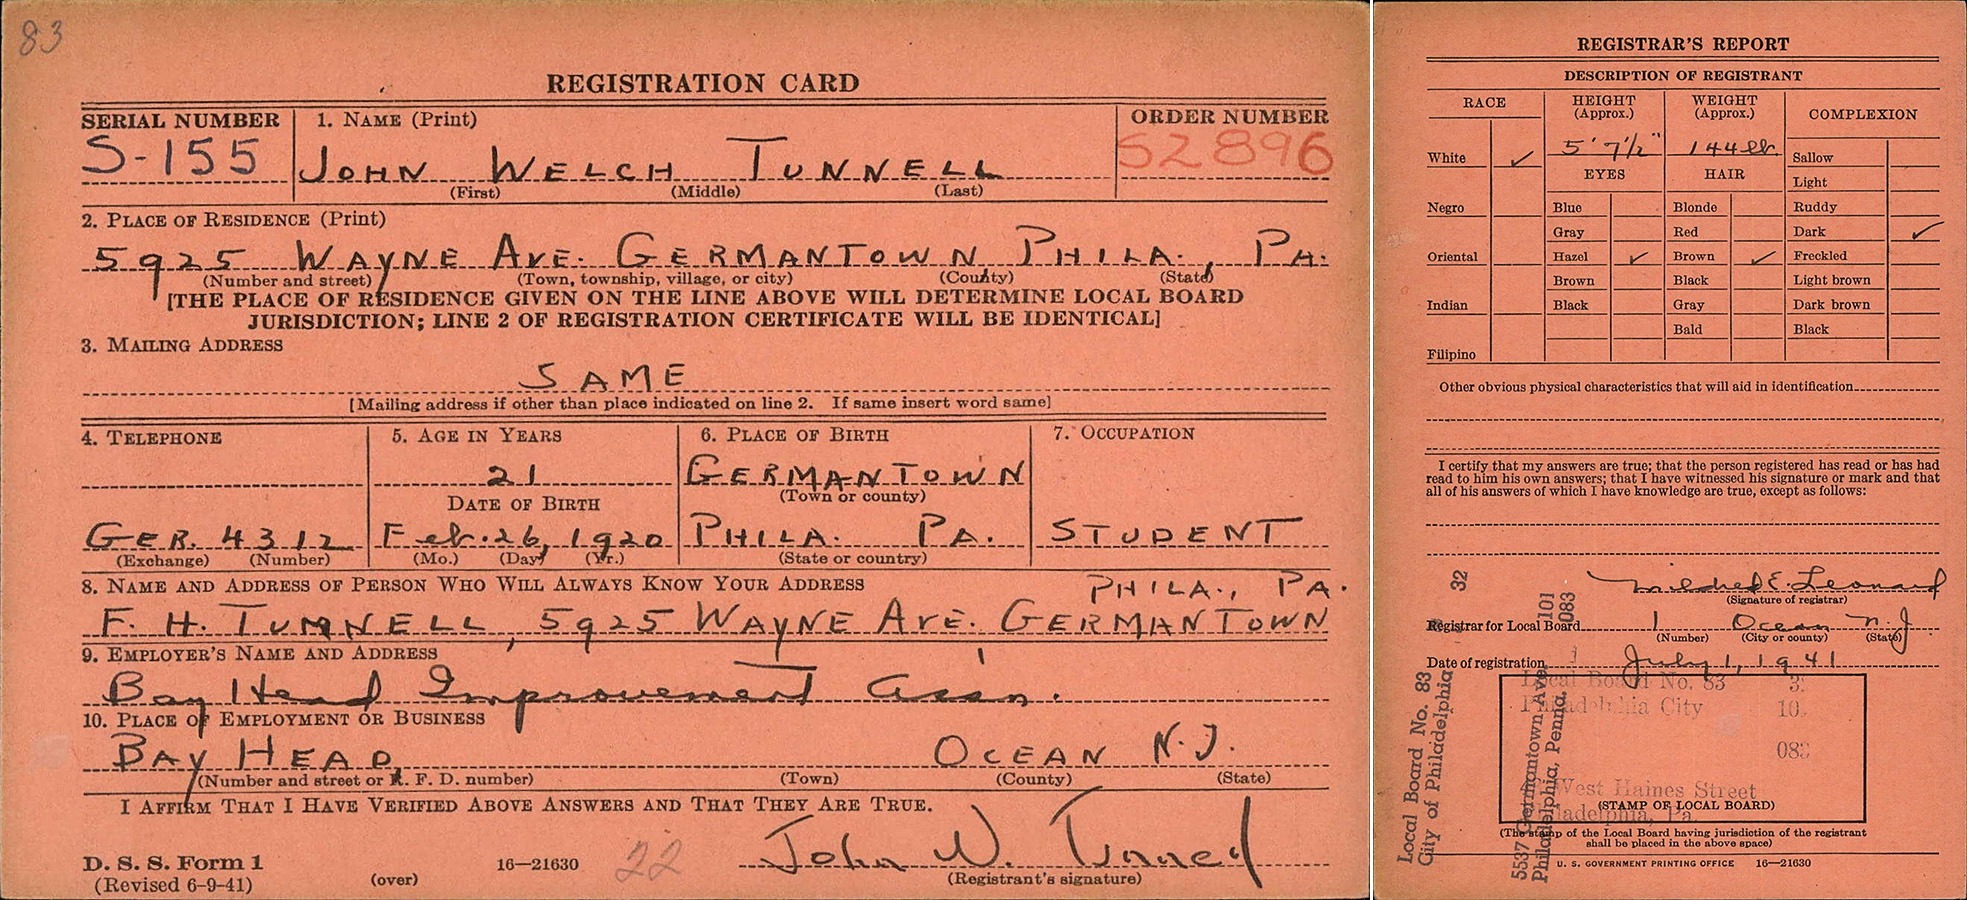 83
REGISTRATION CARD
SERIAL NUMBER
S-155
1. NAME (Print)
JOHN WELCH TUNNELL
(First) (Middle) (Last)
ORDER NUMBER
S2896
2. PLACE OF RESIDENCE (Print)
5925 WAYNE AVE. GERMANTOWN PHILA., PA.
(Number and street) (Town, township, village, or city) (County) (State)
[THE PLACE OF RESIDENCE GIVEN ON THE LINE ABOVE WILL DETERMINE LOCAL BOARD
JURISDICTION; LINE 2 OF REGISTRATION CERTIFICATE WILL BE IDENTICAL]
3. MAILING ADDRESS
SAME
[Mailing address if other than place indicated on line 2. If same insert word same]
4. TELEPHONE
GER. 4312
(Exchange) (Number)
5. AGE IN YEARS
21
DATE OF BIRTH
Feb. 26, 1920
(Mo.) (Day) (Yr.)
6. PLACE OF BIRTH
GERMANTOWN
(Town or county)
PHILA. PA.
(State or country)
7. OCCUPATION
STUDENT
8. NAME AND ADDRESS OF PERSON WHO WILL ALWAYS KNOW YOUR ADDRESS
PHILA., PA.
F. H. TUNNELL, 5925 WAYNE AVE. GERMANTOWN
9. EMPLOYER'S NAME AND ADDRESS
Bay Head Improvement Assn.
10. PLACE OF EMPLOYMENT OR BUSINESS
BAY HEAD, OCEAN N.J.
(Number and street or R. F. D. number) (Town) (County) (State)
I AFFIRM THAT I HAVE VERIFIED ABOVE ANSWERS AND THAT THEY ARE TRUE.
John W. Tunnell
(Registrant's signature)
D. S. S. Form 1
(Revised 6-9-41)
(over)
16—21630
22
REGISTRAR'S REPORT
DESCRIPTION OF REGISTRANT
RACE
White ✓
Negro
Oriental
Indian
Filipino
HEIGHT
(Approx.)
5' 7½"
WEIGHT
(Approx.)
144 lb.
EYES
Blue
Gray
Hazel ✓
Brown
Black
HAIR
Blonde
Red
Brown ✓
Black
Gray
Bald
COMPLEXION
Sallow
Light
Ruddy
Dark ✓
Freckled
Light brown
Dark brown
Black
Other obvious physical characteristics that will aid in identification
I certify that my answers are true; that the person registered has read or has had
read to him his own answers; that I have witnessed his signature or mark and that
all of his answers of which I have knowledge are true, except as follows:
Mildred E. Leonard
(Signature of registrar)
Registrar for Local Board 1 Ocean N.J.
(Number) (City or county) (State)
Date of registration July 1, 1941
Local Board No. 83
Philadelphia City
083
West Haines Street
Philadelphia, Pa.
(STAMP OF LOCAL BOARD)
(The stamp of the Local Board having jurisdiction of the registrant
shall be placed in the above space)
U. S. GOVERNMENT PRINTING OFFICE 16—21630
32
101
083
Local Board No. 83
City of Philadelphia
5537 Germantown Ave.
Philadelphia, Penna.